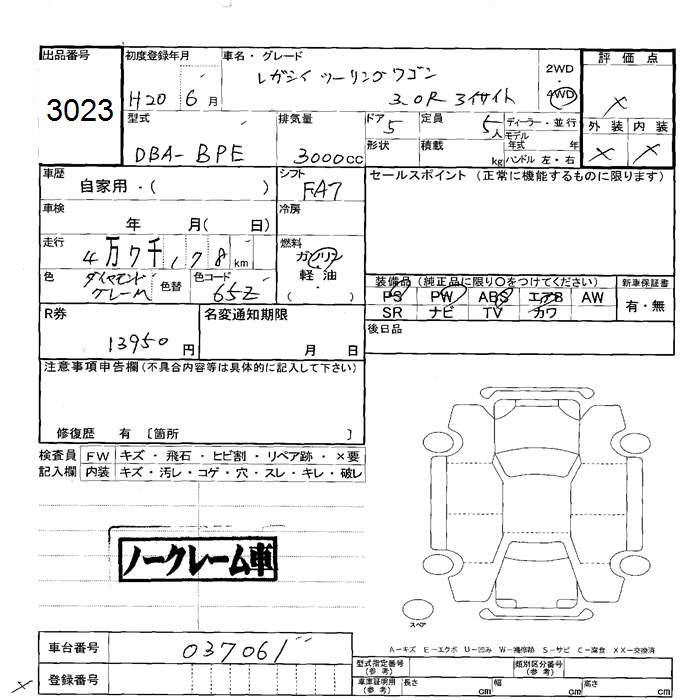 出品番号
3023
初度登録年月
H20 6月
車名・グレード
レガシイ ツーリングワゴン
3.0R アイサイト
2WD
・
4WD
評価点
×
外装 内装
× ×
型式
DBA-BPE
排気量
3000cc
ドア
5
形状
定員
5人
積載
kg
ディーラー・並行
モデル
年式 年
ハンドル 左・右
車歴
自家用・( )
シフト
FA7
冷房
車検
年 月( 日)
走行
4万7千178km
燃料
ガソリン
・
軽油
( )
色
ダイヤモンド
色替
色コード
65Z
セールスポイント (正常に機能するものに限ります)
装備品(純正品に限り○をつけてください)
PS PW ABS エアB AW
SR ナビ TV カワ
新車保証書
有・無
後日品
R券
13950円
名変通知期限
月 日
注意事項申告欄(不具合内容等は具体的に記入して下さい)
修復歴 有 〔箇所 〕
検査員
記入欄
FW キズ・飛石・ヒビ割・リペア跡・×要
内装 キズ・汚レ・コゲ・穴・スレ・キレ・破レ
ノークレーム車
スペア
A-キズ E-エクボ U-凹み W-補修跡 S-サビ C-腐食 XX-交換済
車台番号
037061
登録番号
×
型式指定番号
(参考)
類別区分番号
(参考)
車庫証明用
(参考)
長さ cm 幅 cm 高さ cm